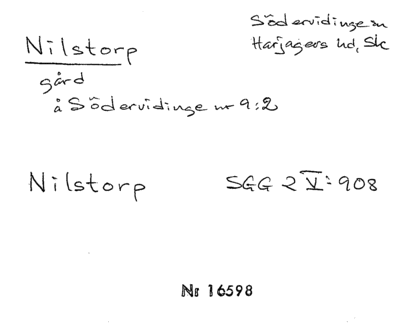 Nilstorp
Södervidinge sn
Harjagers hd, Sk
gård
å Södervidinge nr 9:2
Nilstorp SGG 2 V: 908
Nr 16598